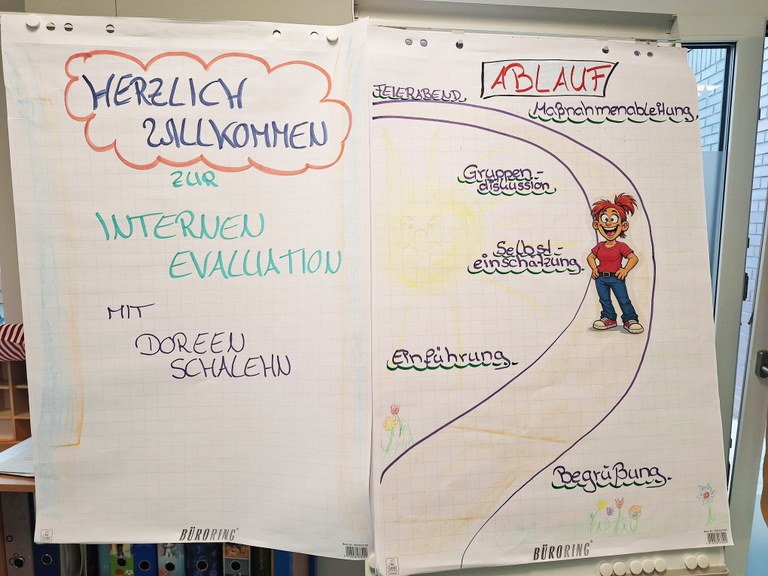 HERZLICH
WILLKOMMEN
ZUR
INTERNEN
EVALUATION
MIT
DOREEN
SCHALEHN
BÜRORING
ABLAUF
FEIERABEND
Maßnahmenableitung
Gruppen-
diskussion
Selbst-
einschätzung
Einführung
Begrüßung
BÜRORING